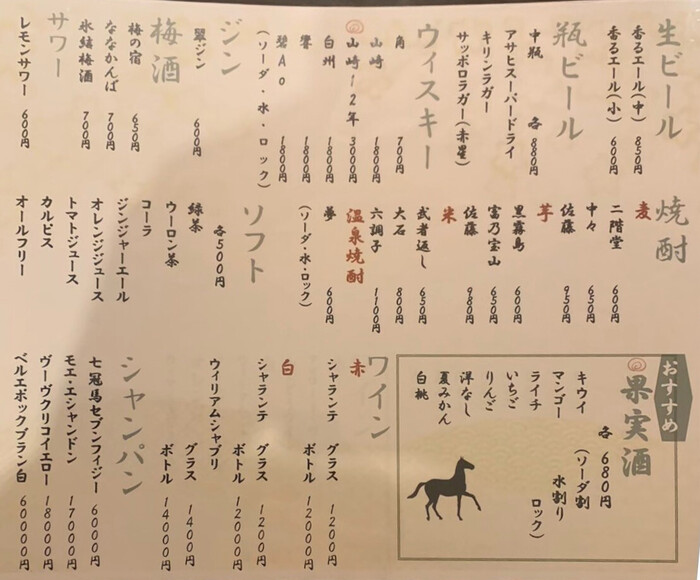 生ビール
香るエール(中) 850円
香るエール(小) 600円
瓶ビール
中瓶 各880円
アサヒスーパードライ
キリンラガー
サッポロラガー(赤星)
ウィスキー
角 700円
山崎 1800円
山崎12年 3000円
白州 1800円
響 1800円
碧Ao 1800円
(ソーダ・水・ロック)
ジン
翠ジン 600円
梅酒
梅の宿 650円
ななかんば 700円
氷結梅酒 700円
サワー
レモンサワー 600円
焼酎
麦
二階堂 600円
中々 650円
佐藤 950円
芋
黒霧島 600円
富乃宝山 650円
佐藤 980円
米
武者返し 650円
大石 800円
六調子 1100円
温泉焼酎
夢 600円
(ソーダ・水・ロック)
ソフト
各500円
緑茶
ウーロン茶
コーラ
ジンジャーエール
オレンジジュース
トマトジュース
カルピス
オールフリー
おすすめ
果実酒
各 680円
(ソーダ割
水割り
ロック)
キウイ
マンゴー
ライチ
いちご
りんご
洋なし
夏みかん
白桃
ワイン
赤
シャランテ グラス 1200円
ボトル 12000円
白
シャランテ グラス 1200円
ボトル 12000円
ウィリアム・シャブリ
グラス 1400円
ボトル 14000円
シャンパン
七冠馬セブンフィジー 6000円
モエ・エ・シャンドン 17000円
ヴーヴクリコイエロー 18000円
ベルエポックブラン白 60000円